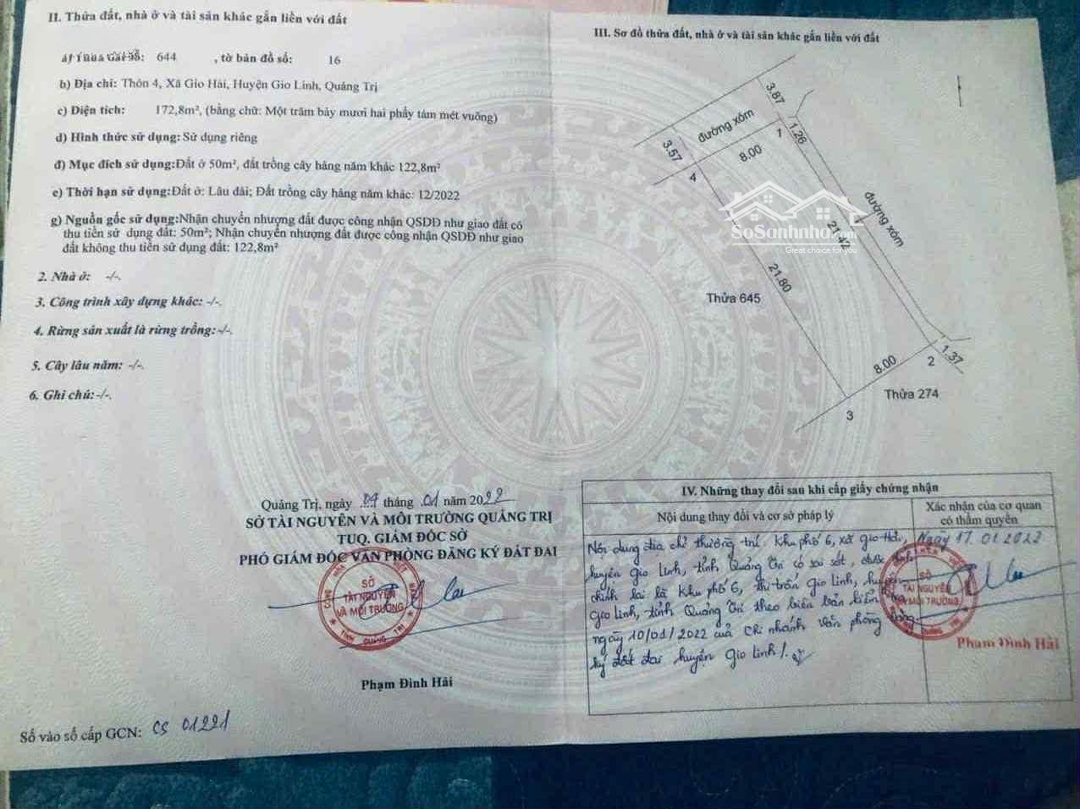 II. Thửa đất, nhà ở và tài sản khác gắn liền với đất
a) Thửa đất số: 644 , tờ bản đồ số: 16
b) Địa chỉ: Thôn 4, Xã Gio Hải, Huyện Gio Linh, Quảng Trị
c) Diện tích: 172,8m², (bằng chữ: Một trăm bảy mươi hai phẩy tám mét vuông)
d) Hình thức sử dụng: Sử dụng riêng
đ) Mục đích sử dụng:Đất ở 50m², đất trồng cây hàng năm khác 122,8m²
e) Thời hạn sử dụng:Đất ở: Lâu dài; Đất trồng cây hàng năm khác: 12/2022
g) Nguồn gốc sử dụng:Nhận chuyển nhượng đất được công nhận QSDĐ như giao đất có
thu tiền sử dụng đất: 50m²; Nhận chuyển nhượng đất được công nhận QSDĐ như giao
đất không thu tiền sử dụng đất: 122,8m²
2. Nhà ở: -/-.
3. Công trình xây dựng khác: -/-.
4. Rừng sản xuất là rừng trồng: -/-.
5. Cây lâu năm: -/-.
6. Ghi chú:-/-.
Quảng Trị, ngày 07 tháng 01 năm 2022
SỞ TÀI NGUYÊN VÀ MÔI TRƯỜNG QUẢNG TRỊ
TUQ. GIÁM ĐỐC SỞ
PHÓ GIÁM ĐỐC VĂN PHÒNG ĐĂNG KÝ ĐẤT ĐAI
SỞ
TÀI NGUYÊN
VÀ MÔI TRƯỜNG
TỈNH QUẢNG TRỊ
Phạm Đình Hải
Số vào sổ cấp GCN: CS 01221
III. Sơ đồ thửa đất, nhà ở và tài sản khác gắn liền với đất
3.87
đường xóm
1
1.26
3.57
8.00
4
đường xóm
21.42
SoSanhnha.com
Great choice for you
21.80
Thửa 645
1.37
8.00
2
Thửa 274
3
IV. Những thay đổi sau khi cấp giấy chứng nhận
Nội dung thay đổi và cơ sở pháp lý
Xác nhận của cơ quan
có thẩm quyền
Nội dung địa chỉ thường trú: Khu phố 6, xã Gio Hải,
huyện Gio Linh, tỉnh Quảng Trị có sai sót, được
chỉnh lại là Khu phố 6, thị trấn Gio Linh, huyện
Gio Linh, tỉnh Quảng Trị theo biên bản kiểm tra
ngày 10/01/2022 của Chi nhánh Văn phòng đăng
ký đất đai huyện Gio Linh./.
Ngày 17.01.2022
SỞ
TÀI NGUYÊN
VÀ MÔI TRƯỜNG
Phạm Đình Hải